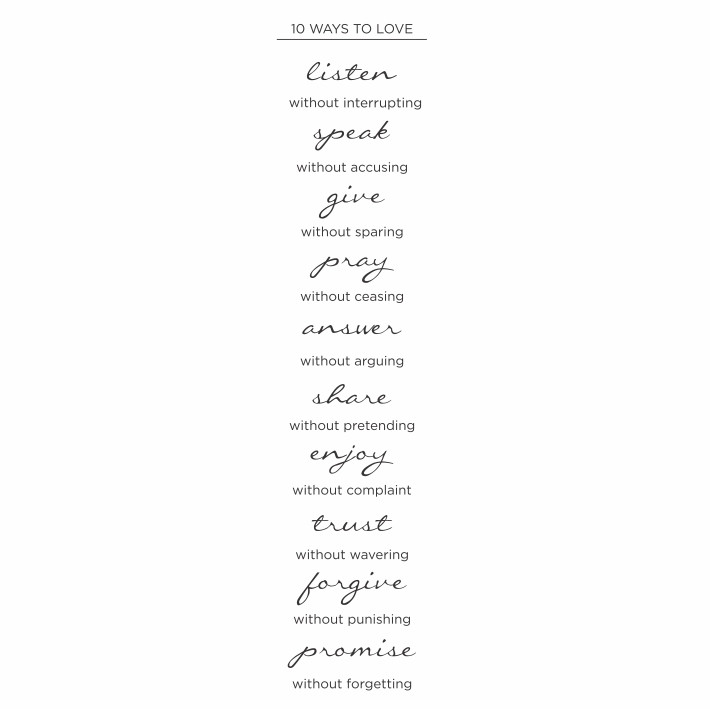 10 WAYS TO LOVE
listen
without interrupting
speak
without accusing
give
without sparing
pray
without ceasing
answer
without arguing
share
without pretending
enjoy
without complaint
trust
without wavering
forgive
without punishing
promise
without forgetting